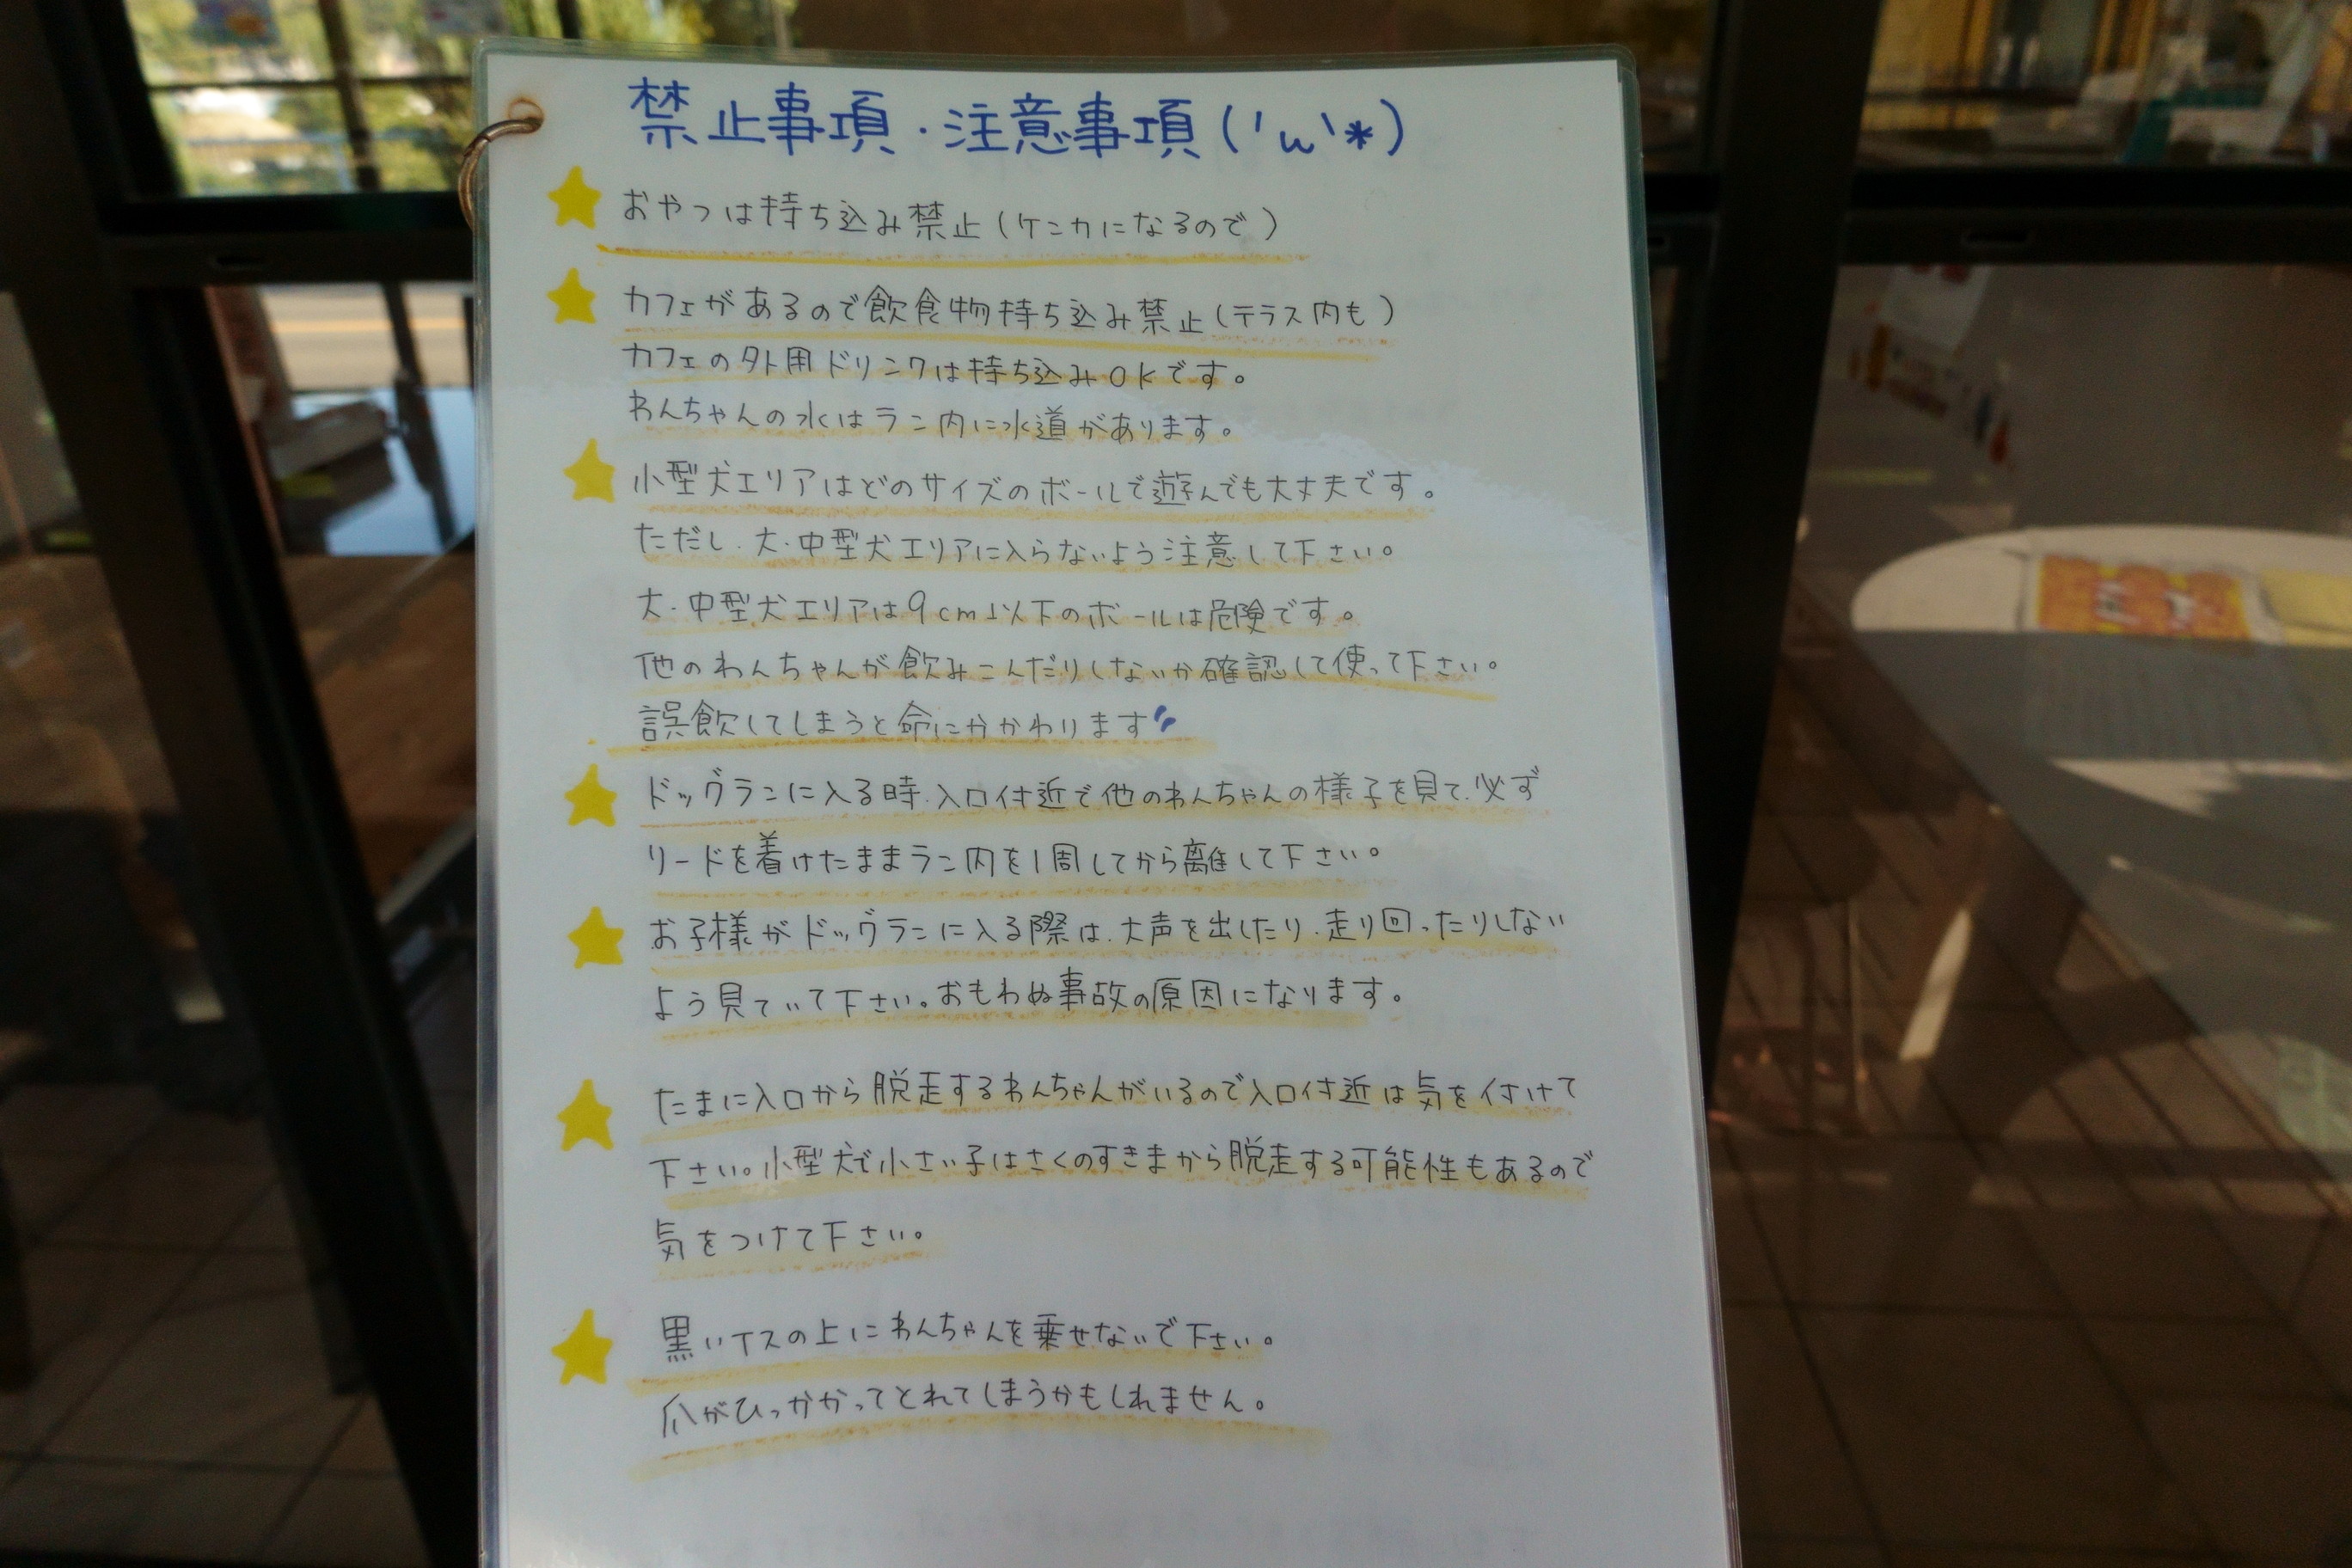 禁止事項・注意事項('ω'*)
おやつは持ち込み禁止(ケンカになるので)
カフェがあるので飲食物持ち込み禁止(テラス内も)
カフェの外用ドリンクは持ち込みOKです。
わんちゃんの水はラン内に水道があります。
小型犬エリアはどのサイズのボールで遊んでも大丈夫です。
ただし、大・中型犬エリアに入らないよう注意して下さい。
大・中型犬エリアは9cm以下のボールは危険です。
他のわんちゃんが飲みこんだりしないか確認して使って下さい。
誤飲してしまうと命にかかわります
ドッグランに入る時、入口付近で他のわんちゃんの様子を見て、必ず
リードを着けたままラン内を1周してから離して下さい。
お子様がドッグランに入る際は、大声を出したり、走り回ったりしない
よう見ていて下さい。おもわぬ事故の原因になります。
たまに入口から脱走するわんちゃんがいるので入口付近は気を付けて
下さい。小型犬で小さい子はさくのすきまから脱走する可能性もあるので
気をつけて下さい。
黒いイスの上にわんちゃんを乗せないで下さい。
爪がひっかかってとれてしまうかもしれません。